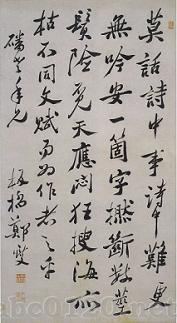 莫話詩中事詩中難更
無吟安一箇字撚斷數莖
鬚險覓天應悶狂搜海亦
枯不同文賦易為作者之乎
年兄
板橋鄭燮